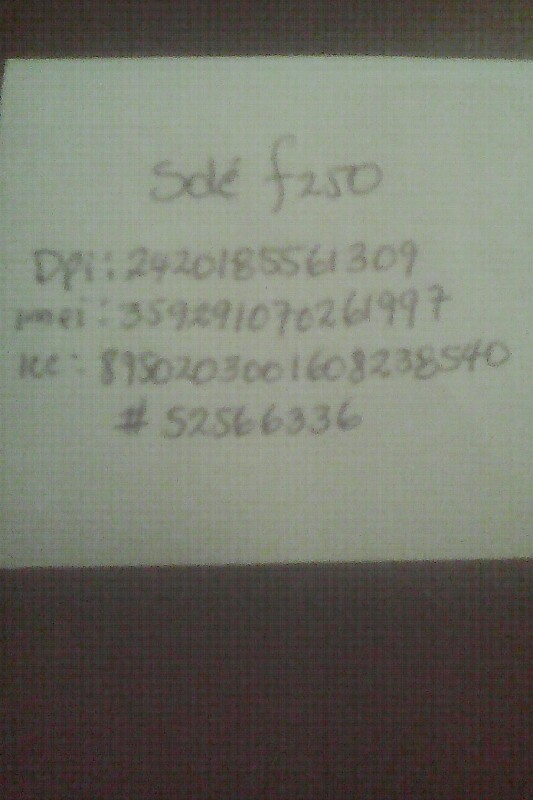 Sole f250
Dpi: 2420185561309
imei: 359291070261997
icc: 8950203001608238540
# 52566336